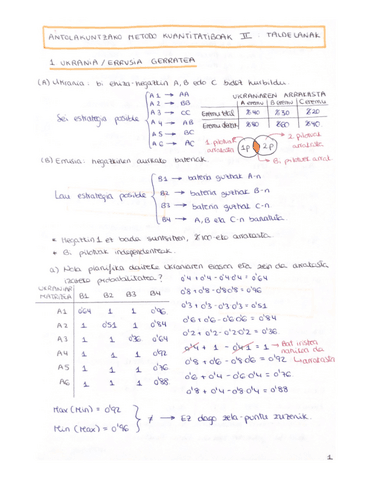 ANTOLAKUNTZAKO METODO KUANTITATIBOAK II TALDE LANAK
1 UKRANIA / ERRUSIA GERRATEA
(A) Ukrania: bi ehiza-hegazkin A, B edo C bidez hurbildu.
Sei estrategia posible
A1 → AA
A2 → BB
A3 → CC
A4 → AB
A5 → BC
A6 → AC
UKRANIAREN ARRAKASTA
A eremu B eremu C eremu
%40 %30 %20
%80 %60 %40
1 pilotuk arrakasta
1P 2P
2 pilotuk arrakasta
Bi pilotuek arrak.
(B) Errusia: hegazkinen aurkako bateriak.
Lau estrategia posible
B1 → bateria guztiak A-n
B2 → bateria guztiak B-n
B3 → bateria guztiak C-n
B4 → A, B eta C-n banatuta
* Hegazkin 1 et bada suntsitzen, %100eko arrakasta.
* Bi pilotuak independenteak.
a) Nola planifika daiteke Ukraniaren erasoa eta zein da arrakasta izateko probabilitatea?
UKRANIAREN MATRIZEA B1 B2 B3 B4
A1 0'64 1 1 0'96
A2 1 0'51 1 0'84
A3 1 1 0'36 0'64
A4 1 1 1 0'92
A5 1 1 1 0'76
A6 1 1 1 0'88
0'4 + 0'4 - 0'4·0'4 = 0'64
0'8 + 0'8 - 0'8·0'8 = 0'96
0'3 + 0'3 - 0'3·0'3 = 0'51
0'6 + 0'6 - 0'6·0'6 = 0'84
0'2 + 0'2 - 0'2·0'2 = 0'36
0'4 + 1 - 0'4·1 = 1 → Bat iristen
0'8 + 0'6 - 0'8·0'6 = 0'92
0'6 + 0'4 - 0'6·0'4 = 0'76
0'8 + 0'4 - 0'8·0'4 = 0'88
Max (Min) = 0'92
Min (Max) = 0'96
≠ → Ez dago zela-puntu zuzenik.
1